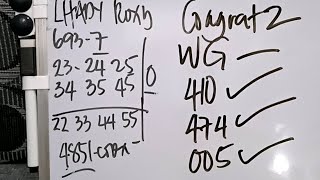 LHADY Roxy
693-7
23-24 25
34 35 45
0
22 33 44 55
4851-cron-
Gograt 2
WG —
410 ✓
474 ✓
005 ✓